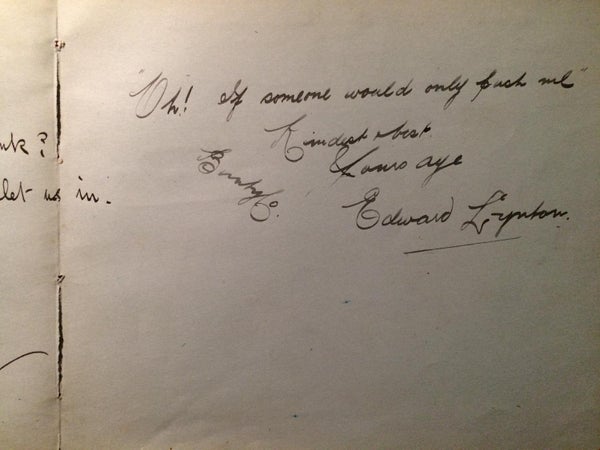 nk?
let us in.
"Oh! If someone would only push me"
Kindest & best
Yours aye
Edward Lynton.